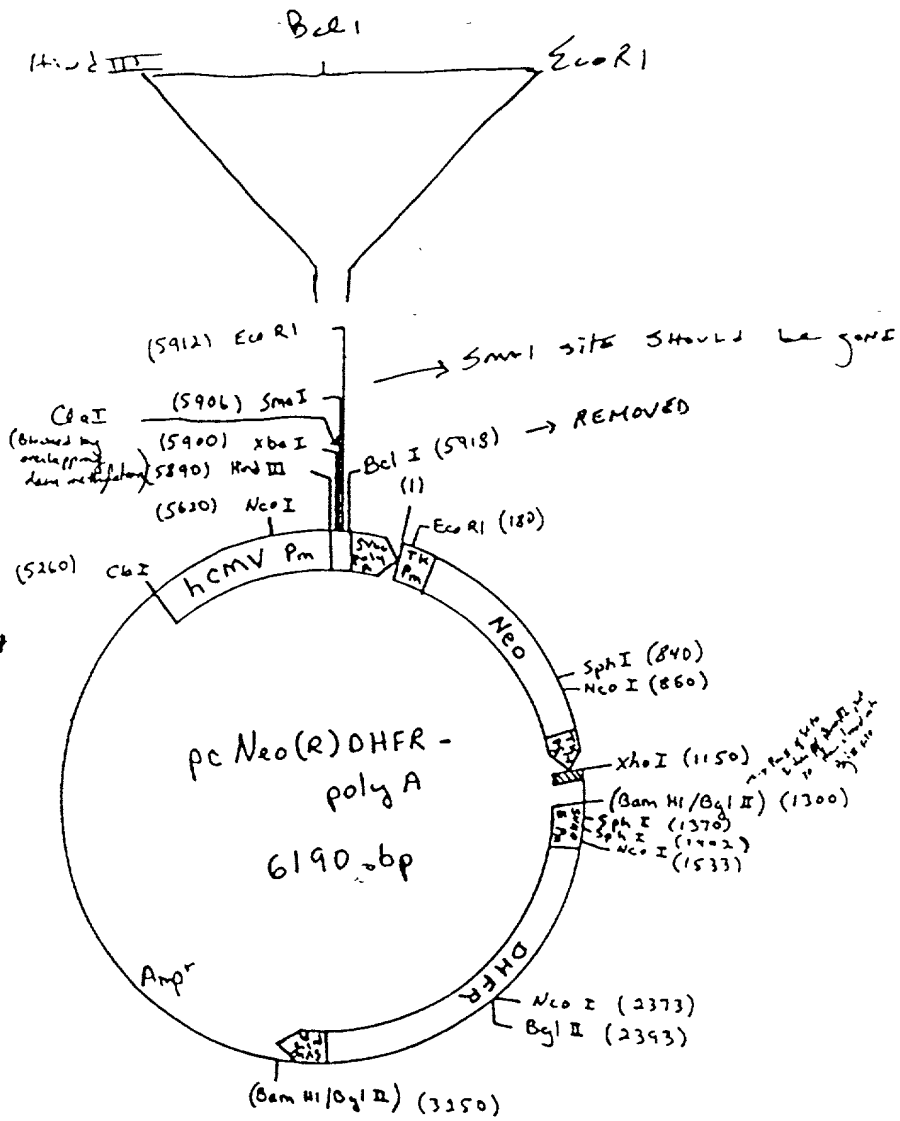 Bcl1
Hind III
EcoR1
(5912) EcoR1
→ Sma1 site should be gone
ClaI
(Blocked by
overlapping
dam methylation)
(5906) SmaI
(5900) XbaI
(5890) Hind III
Bcl I (5918) → REMOVED
(5620) NcoI
(1)
EcoR1 (182)
(5260) ClaI
hCMV Pm
SV40
Poly
A
TK
Pm
Neo
SphI (840)
NcoI (860)
XhoI (1150)
(BamH1/Bgl II) (1300)
SphI (1370)
SphI (1402)
NcoI (1533)
pc Neo(R) DHFR -
poly A
6190 bp
DHFR
NcoI (2373)
Bgl II (2393)
Ampʳ
(BamH1/Bgl II) (3250)